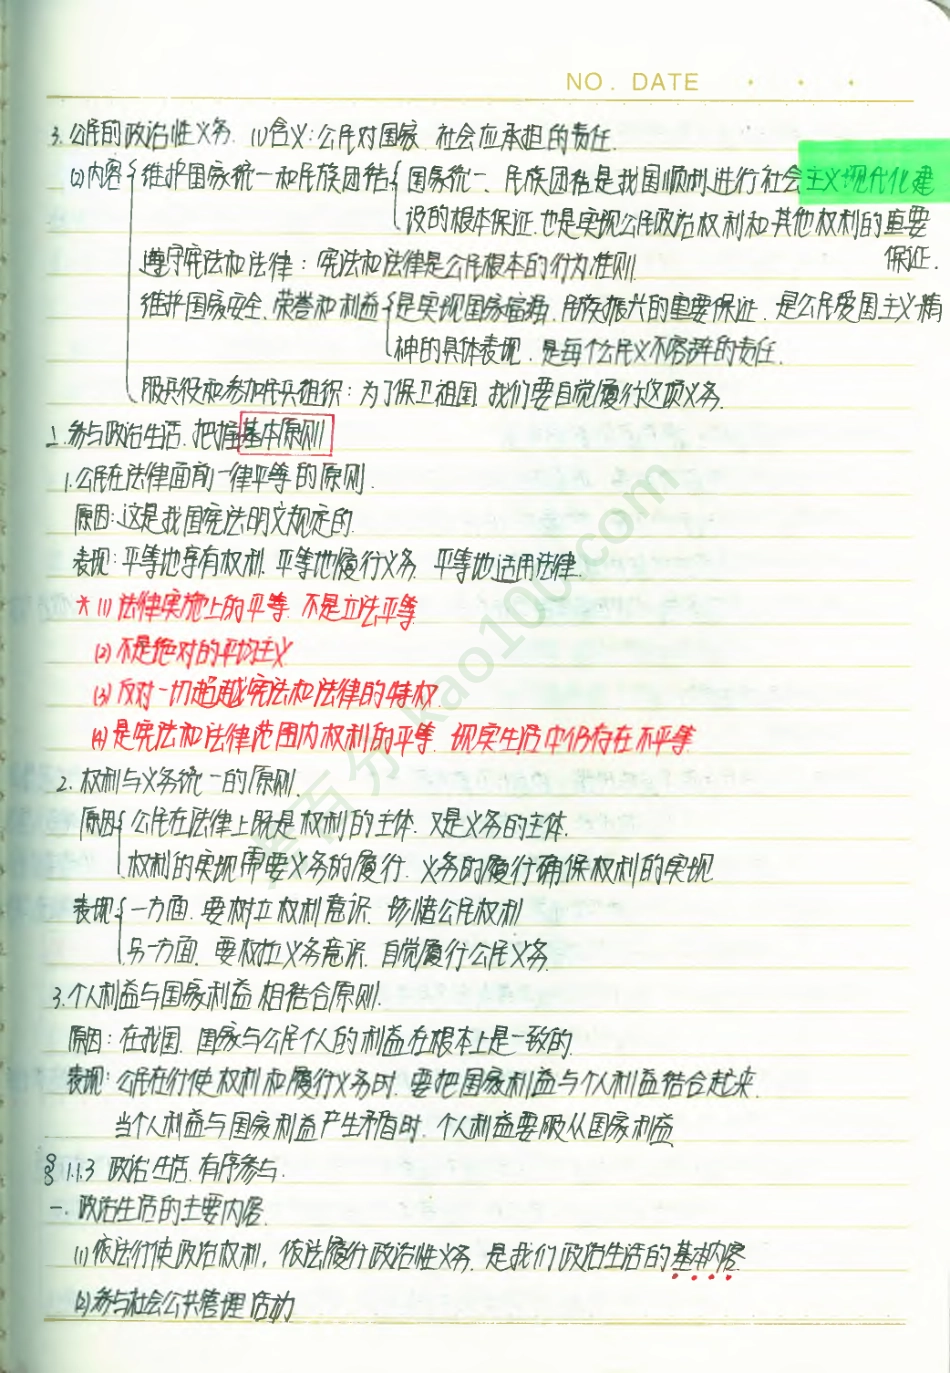 NO. DATE
3. 公民的政治性义务. (1)含义:公民对国家. 社会应承担的责任.
(2)内容{维护国家统一和民族团结{国家统一、民族团结是我国顺利进行社会主义现代化建
设的根本保证.也是实现公民政治权利和其他权利的重要
保证.
遵守宪法和法律:宪法和法律是公民根本的行为准则.
维护国家安全、荣誉和利益{是实现国家富强、民族振兴的重要保证. 是公民爱国主义精
神的具体表现. 是每个公民义不容辞的责任.
服兵役和参加民兵组织:为了保卫祖国.我们要自觉履行这项义务.
二.参与政治生活.把握基本原则
1.公民在法律面前一律平等的原则.
原因:这是我国宪法明文规定的.
表现:平等地享有权利.平等地履行义务. 平等地适用法律.
*(1)法律实施上的平等.不是立法平等
(2)不是绝对的平均主义
(3)反对一切超越宪法和法律的特权.
(4)是宪法和法律范围内权利的平等.现实生活中仍存在不平等.
2. 权利与义务统一的原则.
原因{公民在法律上既是权利的主体.又是义务的主体.
权利的实现需要义务的履行.义务的履行确保权利的实现
表现{一方面.要树立权利意识.珍惜公民权利
另一方面.要树立义务意识.自觉履行公民义务.
3.个人利益与国家利益相结合原则.
原因:在我国.国家与公民个人的利益在根本上是一致的.
表现:公民在行使权利和履行义务时.要把国家利益与个人利益结合起来.
当个人利益与国家利益产生矛盾时.个人利益要服从国家利益
§ 1.1.3 政治生活.有序参与.
一.政治生活的主要内容.
(1)依法行使政治权利,依法履行政治性义务.是我们政治生活的基本内容.
(2)参与社会公共管理活动
考百分 kao100.com